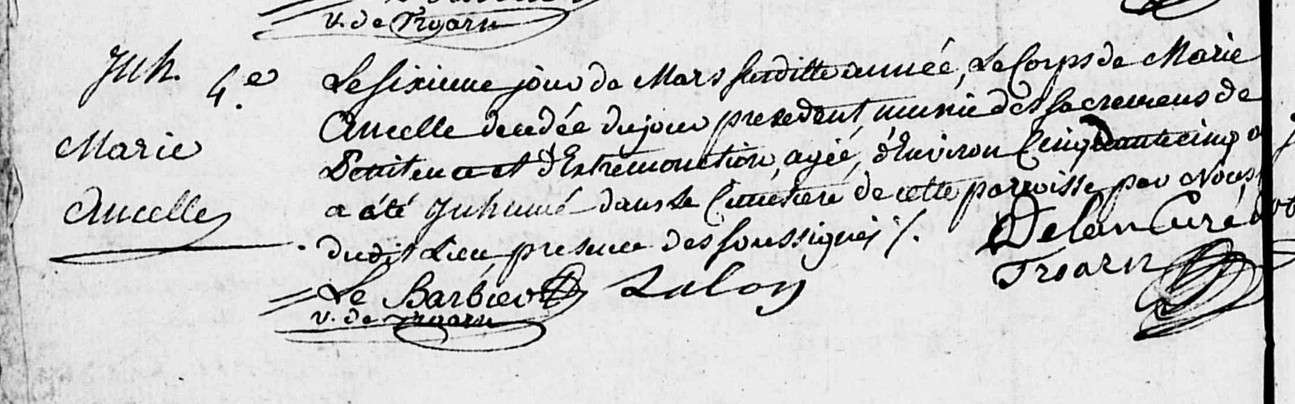 v. de Troarn
Inh. 4.e
Marie
Ancelle
Le sixieme jour de Mars susditte année, Le Corps de Marie
Ancelle decedée du jour precedent, munie des sacremens de
Penitence et d'Extremonction, agée, d'Environ Cinquante cinq
a été Inhumé dans le Cimetiere de cette paroisse par Nous
dudit Lieu presence des soussignés /.
Delan Curé de
Troarn
Le Barbier Lalon
v. de Troarn